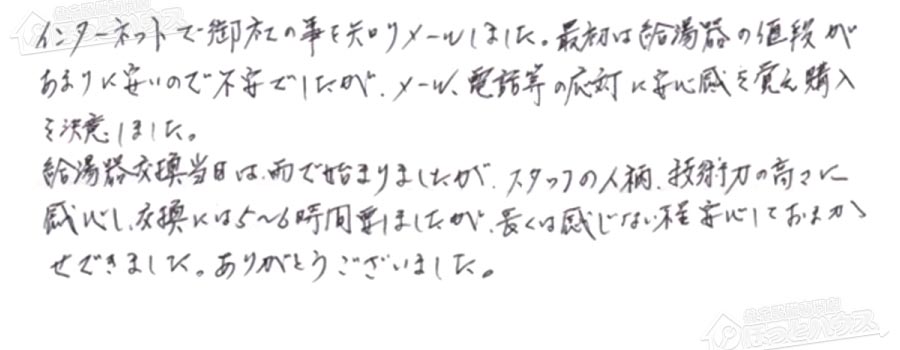 インターネットで御社の事を知りメールしました。最初は給湯器の値段が
あまりに安いので不安でしたが、メール、電話等の応対に安心感を覚え購入
を決意しました。
給湯器交換当日は、雨で始まりましたが、スタッフの人柄、技術力の高さに
感心し、交換には5〜6時間要しましたが、長くは感じない程安心しておまか
せできました。ありがとうございました。
ほっとハウス